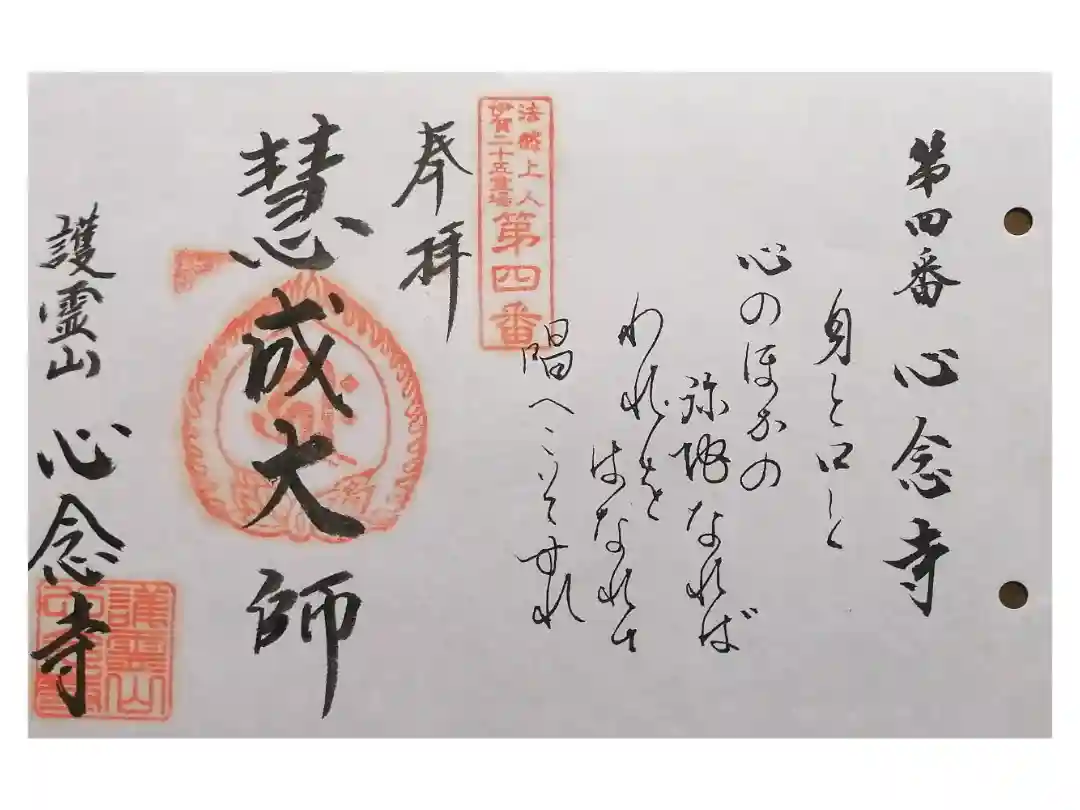 第四番 心念寺
身と口と
心のほかの
弥陀なれば
われをも
はなれて
唱へこそすれ
法然上人
伊賀二十五霊場
第四番
奉拝
慧成大師
護霊山 心念寺
護霊山